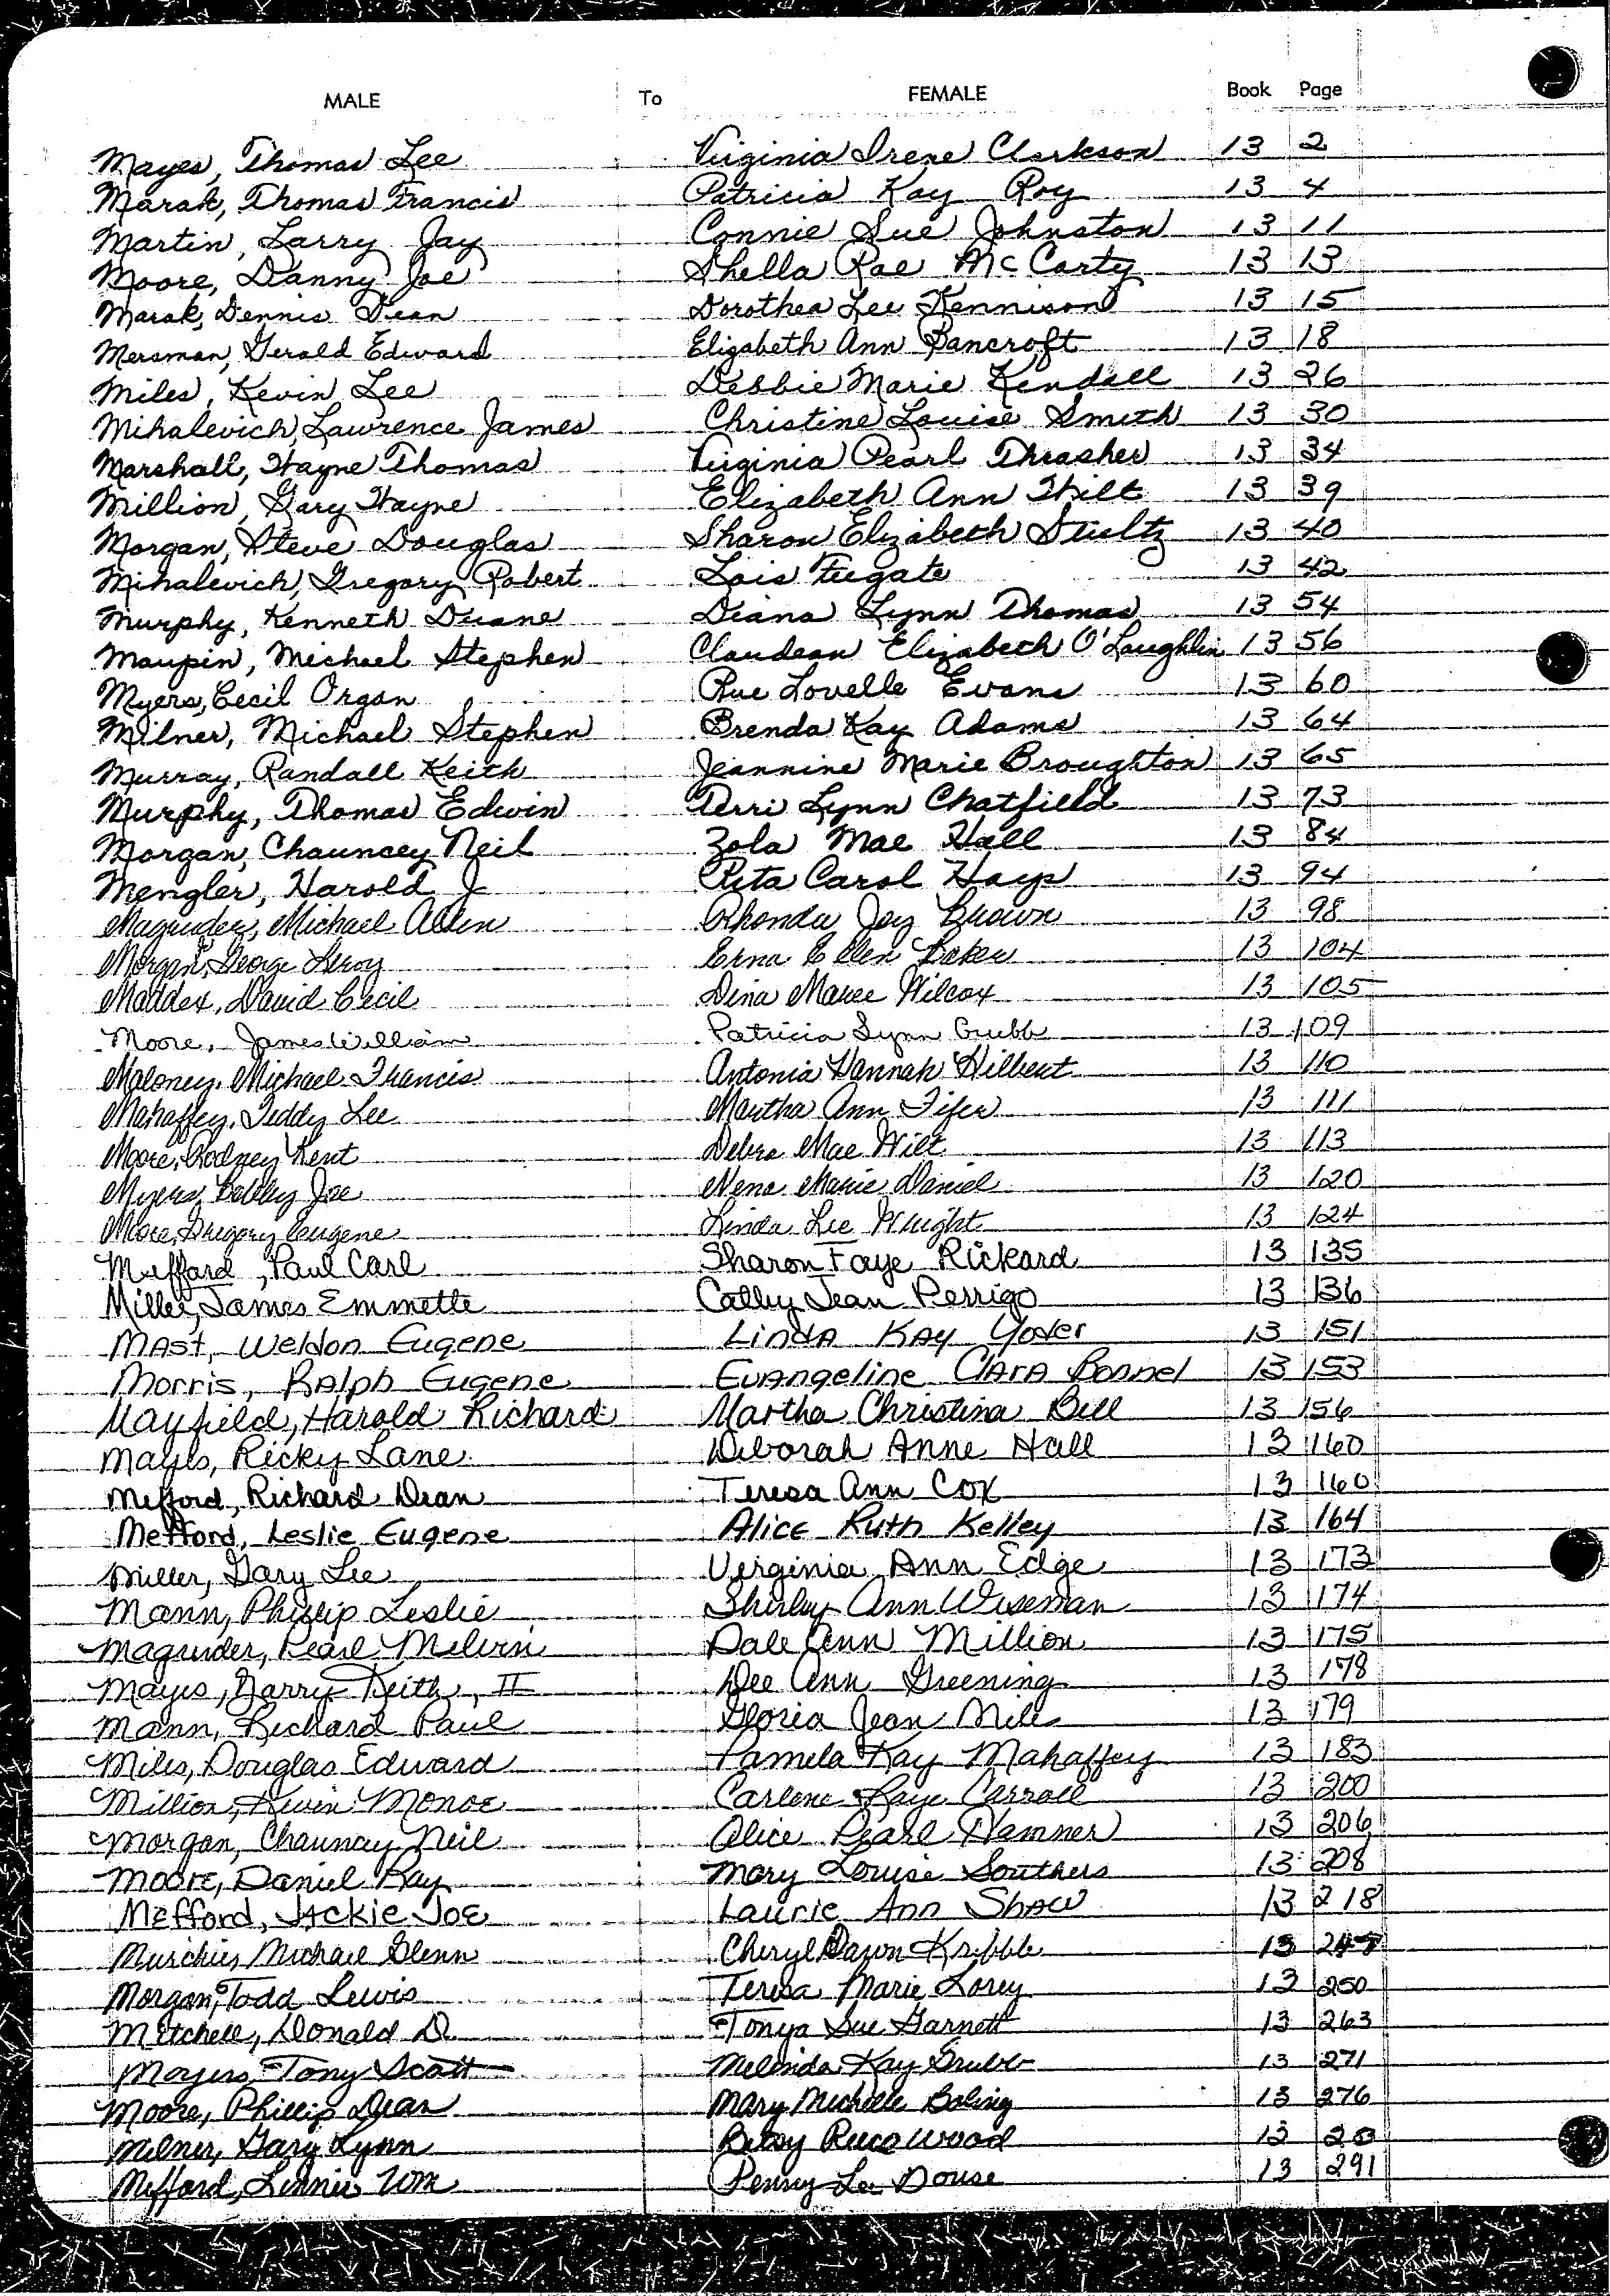 MALE To FEMALE Book Page
Mayes, Thomas Lee Virginia Irene Clarkson 13 2
Marak, Thomas Francis Patricia Kay Roy 13 4
Martin, Larry Jay Connie Sue Johnston 13 11
Moore, Danny Joe Shella Rae McCarty 13 13
Marak, Dennis Dean Dorothea Lee Kennison 13 15
Mersman, Gerald Edward Elizabeth Ann Bancroft 13 18
Miles, Kevin Lee Debbie Marie Kendall 13 26
Mihalevich, Lawrence James Christine Louise Smith 13 30
Marshall, Wayne Thomas Virginia Pearl Thrasher 13 34
Million, Gary Wayne Elizabeth Ann Wilt 13 39
Morgan, Steve Douglas Sharon Elizabeth Stultz 13 40
Mihalevich, Gregory Robert Lois Fugate 13 42
Murphy, Kenneth Duane Diana Lynn Thomas 13 54
Maupin, Michael Stephen Claudean Elizabeth O'Laughlin 13 56
Myers, Cecil Organ Rue Lovelle Evans 13 60
Milner, Michael Stephen Brenda Kay Adams 13 64
Murray, Randall Keith Jeannine Marie Broughton 13 65
Murphy, Thomas Edwin Terri Lynn Chatfield 13 73
Morgan, Chauncey Neil Zola Mae Hall 13 84
Mengler, Harold J Rita Carol Hays 13 94
Magruder, Michael Allen Rhonda Joy Brown 13 98
Morgan, George Leroy Erna Ellen Baker 13 104
Maddex, David Cecil Dina Maree Wilcox 13 105
Moore, James William Patricia Lynn Grubb 13 109
Maloney, Michael Francis Antonia Hannah Hilbert 13 110
Mahaffey, Teddy Lee Martha Ann Fifer 13 111
Moore, Rodney Kent Debra Mae Wilt 13 113
Myers, Bobby Joe Nena Marie Daniel 13 120
Moore, Gregory Eugene Linda Lee Wright 13 124
Mefford, Paul Carl Sharon Faye Rickard 13 135
Miller, James Emmette Cathy Jean Perrigo 13 136
Mast, Weldon Eugene Linda Kay Yoder 13 151
Morris, Ralph Eugene Evangeline Clara Bonnel 13 153
Mayfield, Harold Richard Martha Christina Bell 13 156
Mayes, Ricky Lane Deborah Anne Hall 13 160
Mefford, Richard Dean Teresa Ann Cox 13 160
Mefford, Leslie Eugene Alice Ruth Kelley 13 164
Miller, Gary Lee Virginia Ann Edge 13 173
Mann, Phillip Leslie Shirley Ann Wiseman 13 174
Magruder, Pearl Melvin Dale Ann Million 13 175
Mayes, Harry Keith, II Dee Ann Greening 13 178
Mann, Richard Paul Gloria Jean 13 179
Miles, Douglas Edward Pamela Kay Mahaffey 13 183
Million, Kevin Monoe Carlene Faye Carroll 13 200
Morgan, Chauncey Neil Alice Pearl Hamner 13 206
Moore, Daniel Ray Mary Louise Southers 13 208
Mefford, Jackie Joe Laurie Ann Shaw 13 218
Murchies Michael Glenn Cheryl Dawn Kribbs 13
Morgan, Todd Lewis Teresa Marie Lorey 13 250
Mitchell, Donald D. Tonya Sue Garnett 13 263
Mayers, Tony Scott Melinda Kay Grubb 13 271
Moore, Phillip Dean Mary Michelle Boling 13 276
Milner, Gary Lynn Betsy Wood 13
Mefford, Lennie Wm Penny Lee Douse 13 291